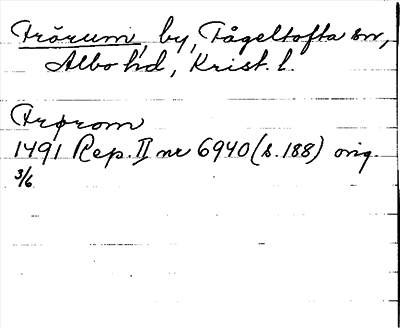 Frörum, by, Fågeltofta sn,
Albo hd, Krist. l.
Frørom
1491 Rep. II nr 6940 (s. 188) orig.
3/6